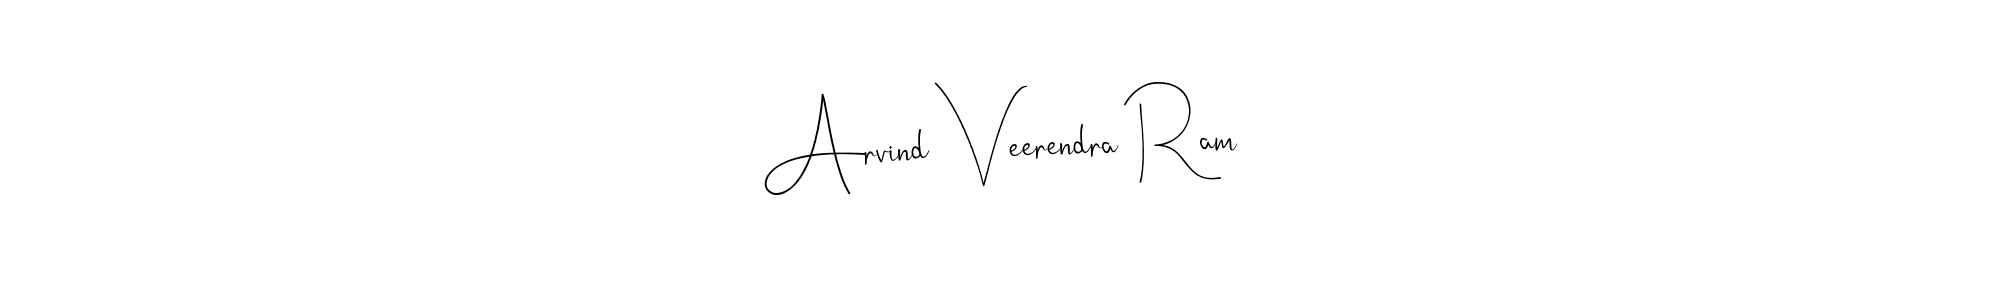 Arvind Veerendra Ram